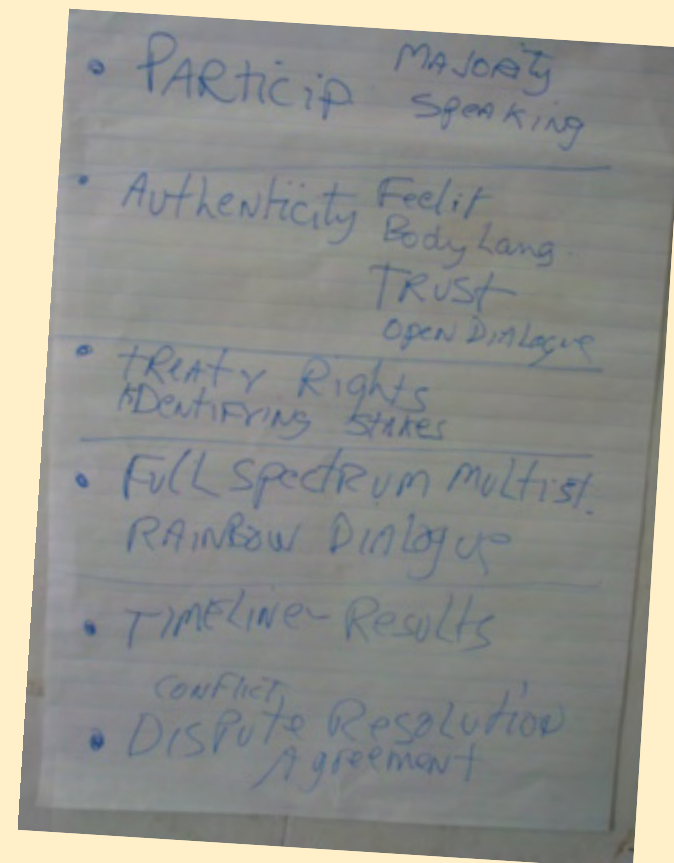 • PARticip MAJORity
SpeAKing
• Authenticity Feel it
Body Lang.
TRUSt
OpeN DiALogue
• tReAty Rights
IDentiFying StAKes
• FuLL SpectRum multist.
RAINBOW DIALogue
• TIMELINe - Results
CONFlict
• DISPute ResoLutioN
Agreement